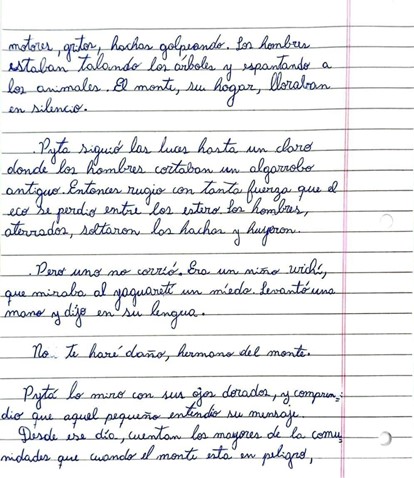 motores, gritos, hachas golpeando. Los hombres
estaban talando los árboles y espantando a
los animales. El monte, su hogar, lloraban
en silencio.
Pyta siguió las luces hasta un claro
donde los hombres cortaban un algarrobo
antiguo. Entonces rugio con tanta fuerza que el
eco se perdio entre los estero. Los hombres,
aterrados, soltaron las hachas y huyeron.
Pero uno no corrió. Era un niño wichí,
que miraba al yaguareti un miedo. Levantó una
mano y dijo en su lengua.
No te haré daño, hermano del monte.
Pytá lo miro con sus ojos dorados, y compren=
dio que aquel pequeño entendio su mensaje.
Desde ese día, cuentan los mayores de la comu=
nidades que cuando el monte esta en peligro,